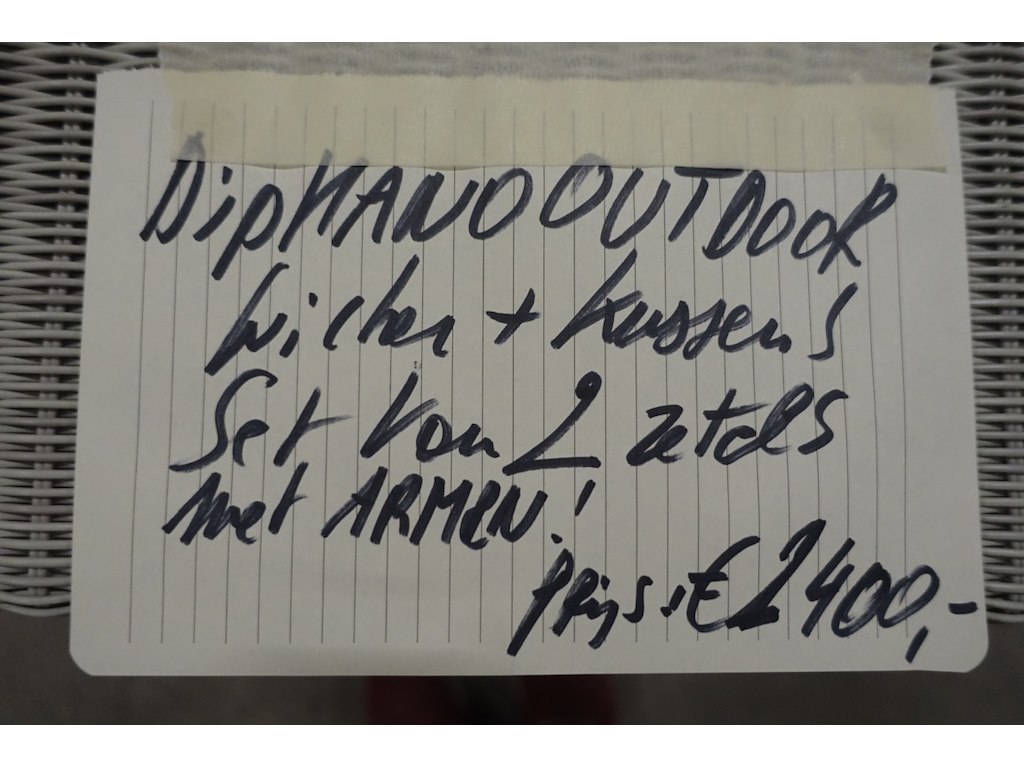 DipHANO OUTDOOR
Wicker + kussens
Set van 2 zetels
met ARMEN!
prijs: € 2400,-